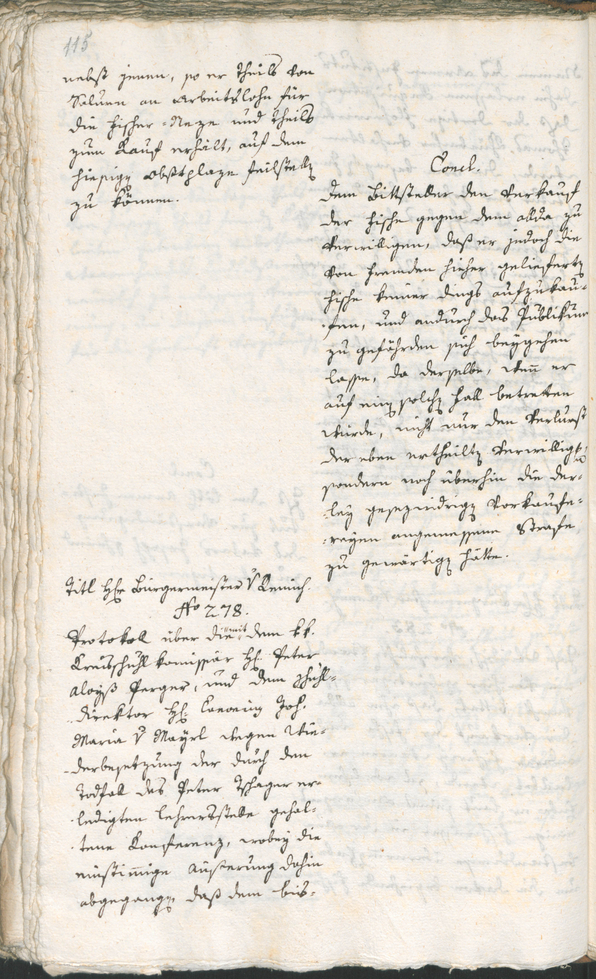 115
nebst jenen, so er theils von
Salurn an Arbeitslohn für
die Fischer-Neze und theils
zum Kauf erhält, auf dem
hiesigen Obstplaze feilstellen
zu können.
Concl.
Dem Bittsteller den Verkauf
der Fische gegen dem allda zu
verwilligen, daß er jedoch die
von Fremden hieher geliefertn
Fische keiner dings aufzukau-
fen, und andurch das Publikum
zu gefährden sich beygehen
lasse, da derselbe, wenn er
auf einen solchen Fall betretten
würde, nicht nur den Verlurst
der eben ertheilten Verwilligung,
sondern noch überhin die der-
ley gesezwidrigen Vorkaufe-
reyen angemessene Strafe
zu gewärtigen hätte.
Titl Hr Bürgermeister v
No 278.
Protokol über die mit dem kk.
Kreisschulkomissär H. Peter
Aloyß Perger, und dem Schul-
direktor H. Canonicus Joh.
Maria v Mayrl wegen Wie-
derbesetzung der durch den
Todfall des Peter Tschager er-
ledigten Lehrersstelle gehal-
tene Konferenz, wobey die
einstimmige Äusserung dahin
abgegangen, daß dem bis-